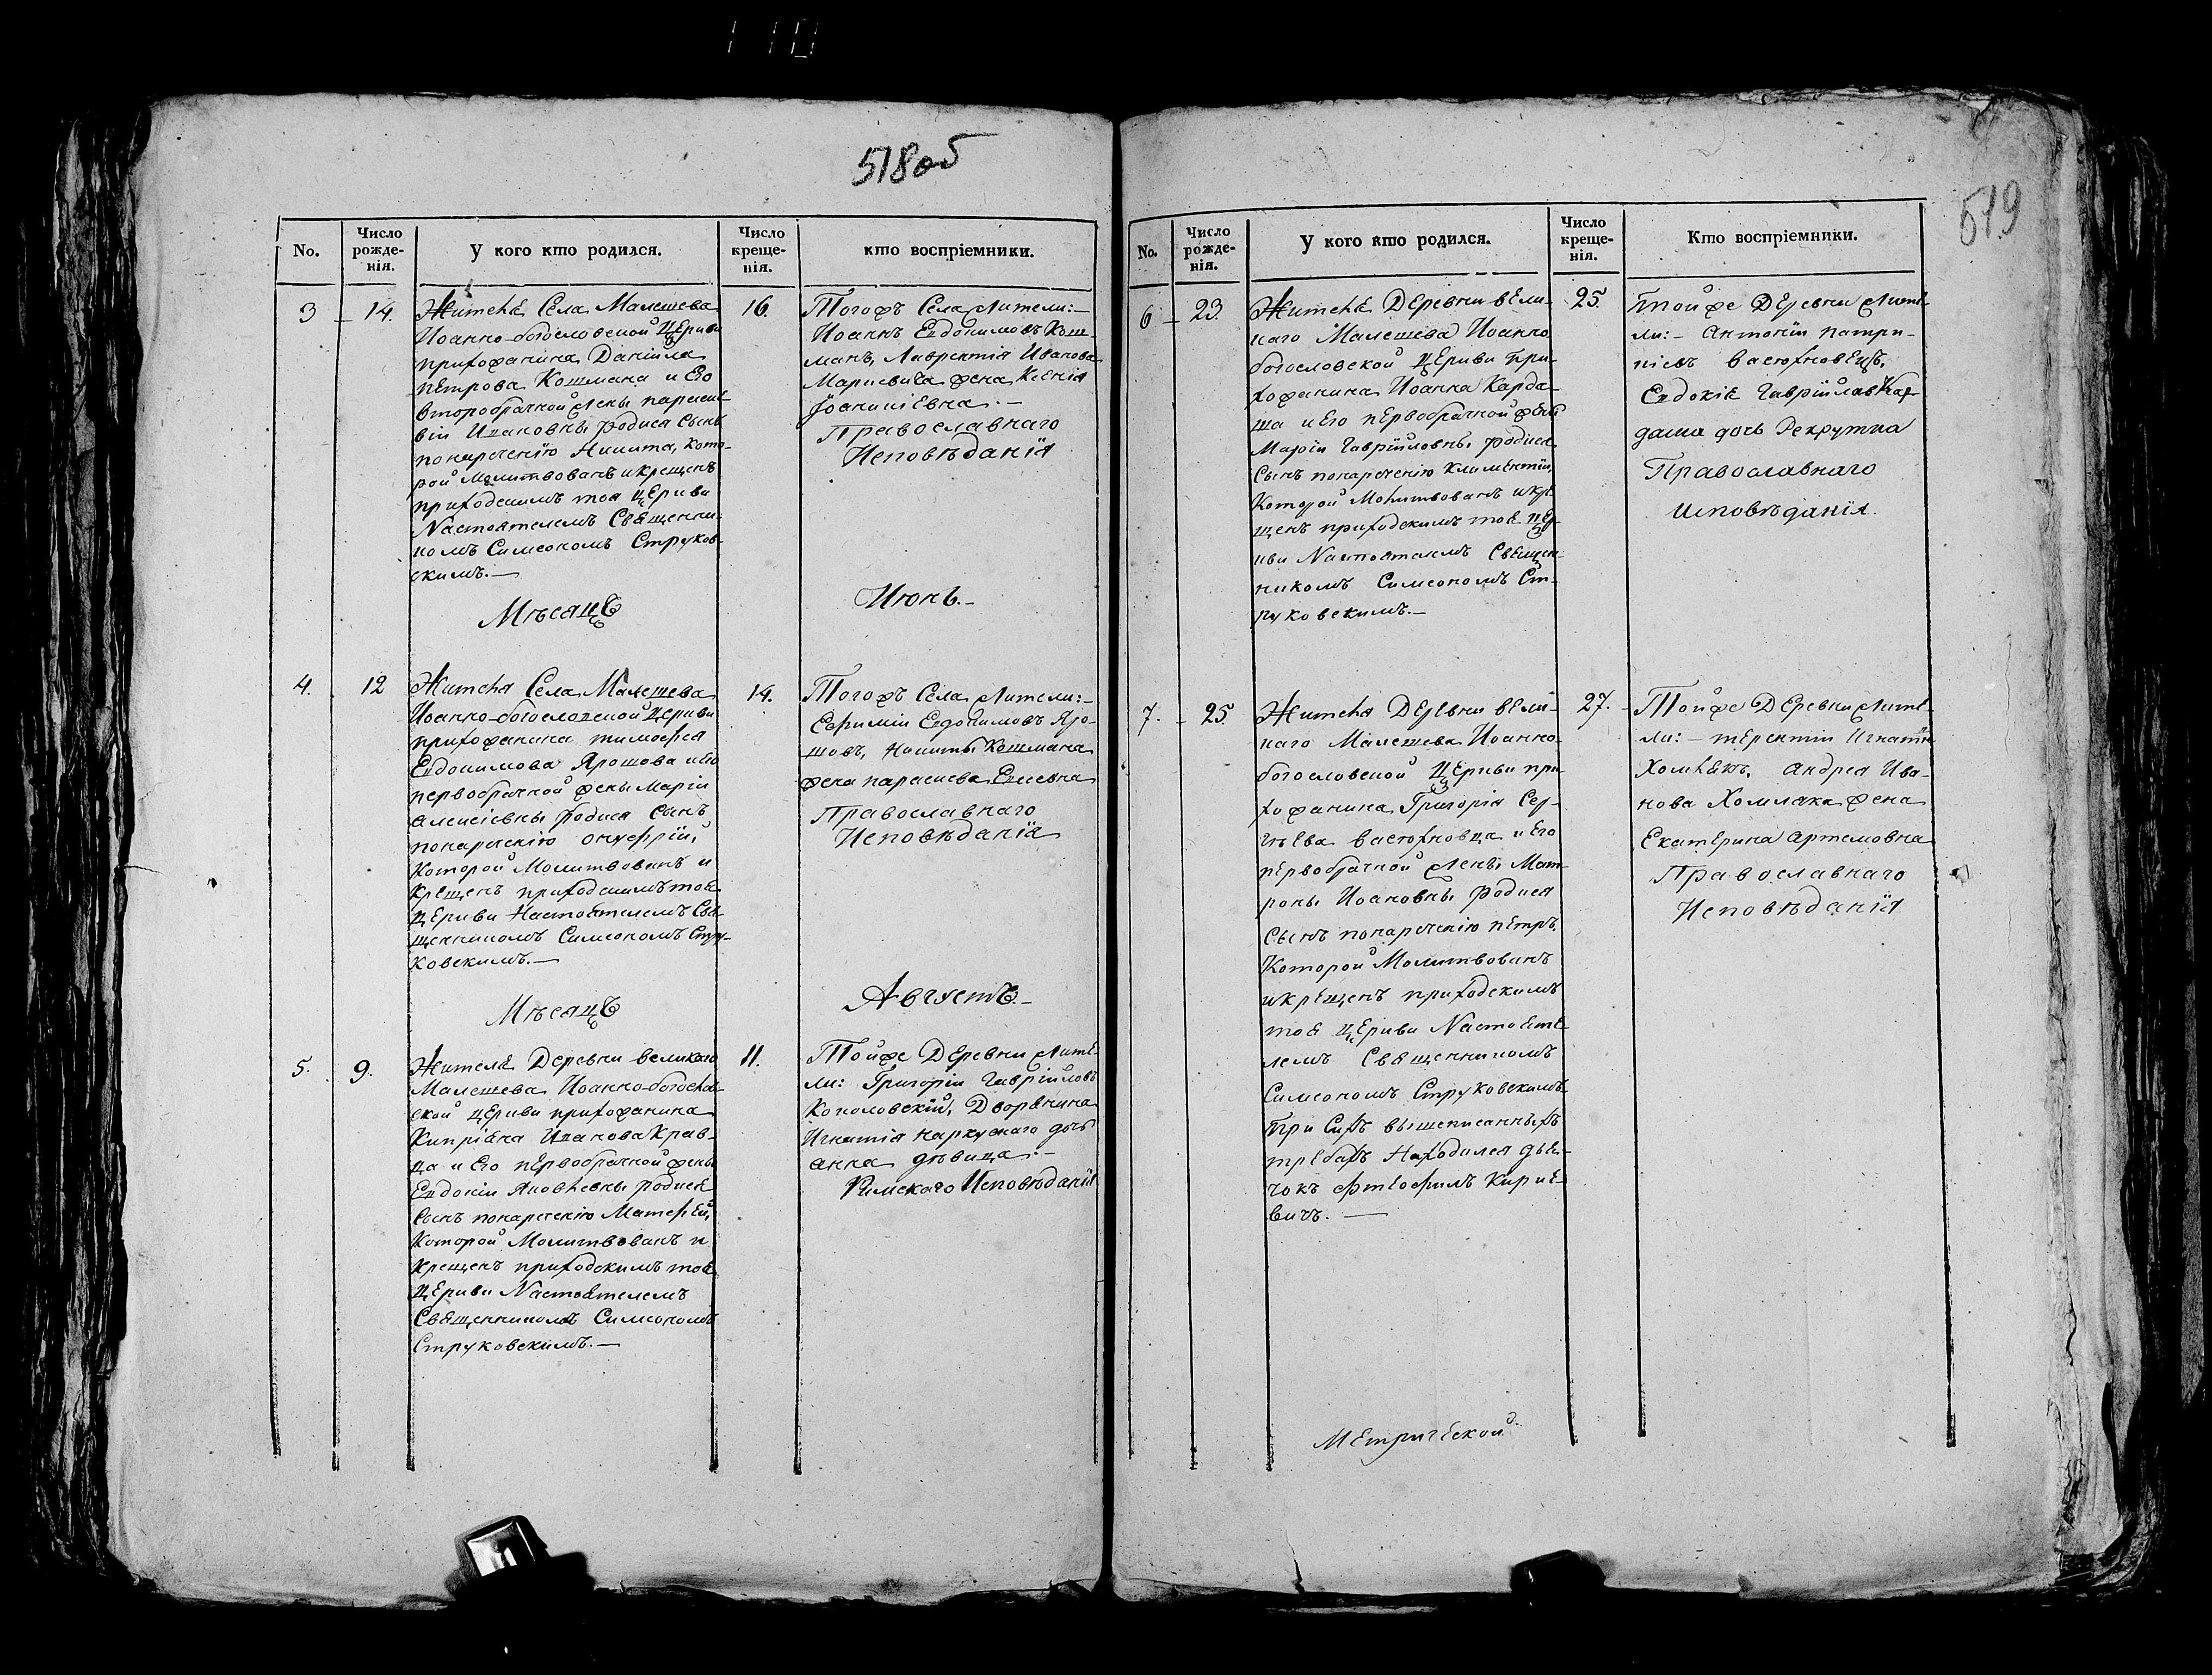 518 об
No.
Число рожде-нія.
У кого кто родился.
Число креще-нія.
кто воспріемники.
3
14.
Жителя Села Малешева
Иоанно-богословской Церкви
прихожанина Даніила
петрова Кошмана и Его
второбрачной жены параске-
віи Ивановны родися сынъ
понаречению Никита, кото-
рой молитвованъ и крещенъ
приходскимъ тоя Церкви
Настоятелемъ Священни-
комъ Симеономъ Струков-
скимъ.—
16.
Тогожъ Села жители:—
Иоаннъ Евдокимовъ Кош-
манъ, Лаврентія Иванова
жена Ксенія
Православнаго
Исповѣданія
Мѣсяцъ
Июнь.—
4.
12
Жителя Села Малешева
Иоанно-богословской Церкви
прихожанина тимофея
Евдокимова Ярошова и Его
первобрачной жены Маріи
алексіевны родися сынъ
понаречению онуфрій,
Которой Молитвованъ и
Крещенъ приходскимъ тоя
Церкви Настоятелемъ Свя-
щенникомъ Симеономъ Стру-
ковскимъ.—
14.
Тогожъ Села жители:—
Ефимій Евдокимовъ Яро-
шовъ, Никиты Кошмана
жена параскева
Православнаго
Исповѣданія
Мѣсяцъ
Августъ.—
5.
9.
Жителя Деревни великаго
Малешева Иоанно-богослов-
ской церкви прихожанина
Кипріяна Иванова Крав-
ца и Его первобрачной жены
Евдокіи Яковлевны родися
Сынъ понаречению Матфей,
Которой Молитвованъ и
Крещенъ приходскимъ тоя
Церкви Настоятелемъ
Священникомъ Симеономъ
Струковскимъ.—
11.
Тойже Деревни жите-
ли: Григорій Гавріиловъ
Кополовский, Дворянина
Игнатія дочь
анна дѣвица.—
Римскаго Исповѣданія
519
No.
Число рожде-нія.
У кого кто родился.
Число креще-нія.
Кто воспріемники.
6
23.
Жителя Деревни вели-
каго Малешева Иоанно
богословской Церкви при-
хожанина Иоанна Карда-
ша и Его первобрачной жены
Маріи Гавріиловны родися
Сынъ понаречению Климентій,
Которой Молитвованъ и кре-
щенъ приходскимъ тоя цер-
кви Настоятелемъ Священ-
никомъ Симеономъ Ст-
руковскимъ.—
25.
Тойже Деревни жите-
ли:— Антоній патри-
кіевъ васюхновецъ,
Евдокія Гавріилова Кар-
даша дочь Рекрутка
Православнаго
Исповѣданія.
7.
25.
Жителя Деревни вели-
каго Малешева Иоанно-
богословской Церкви при-
хожанина Григорія Сер-
гѣева васюхновца и Его
первобрачной жены Мат-
роны Иоановны родися
Сынъ понаречению петръ,
Которой Молитвованъ
и крещенъ приходскимъ
тоя Церкви Настояте-
лемъ Священникомъ
Симеономъ Струковскимъ
При Сихъ вышеписанныхъ
требахъ Находился дья-
чокъ Кирие-
вичъ.—
27.
Тойже Деревни жите-
ли:— терентій Игнатіи
Хомлякъ, андрея Ива-
нова Хомляка жена
Екатерина артемовна
Православнаго
Исповѣданія
Метрической